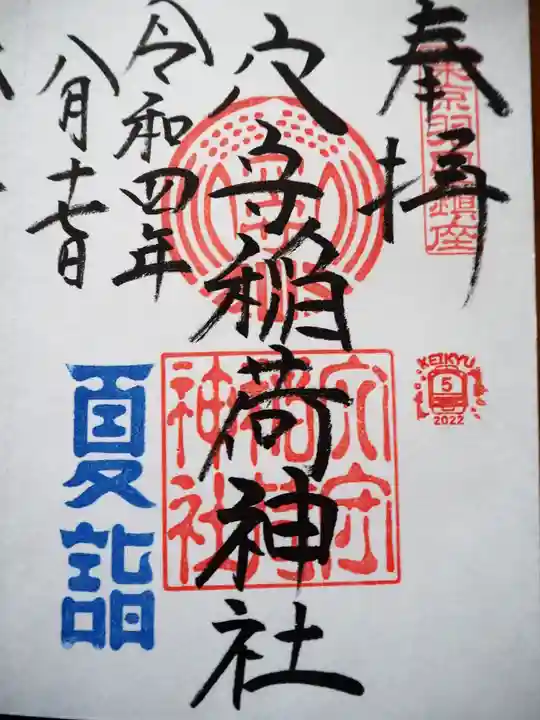 奉拝
東京羽田鎮座
穴守稲荷神社
穴守
稲荷
神社
令和四年
八月十七日
夏詣
KEIKYU
5
2022